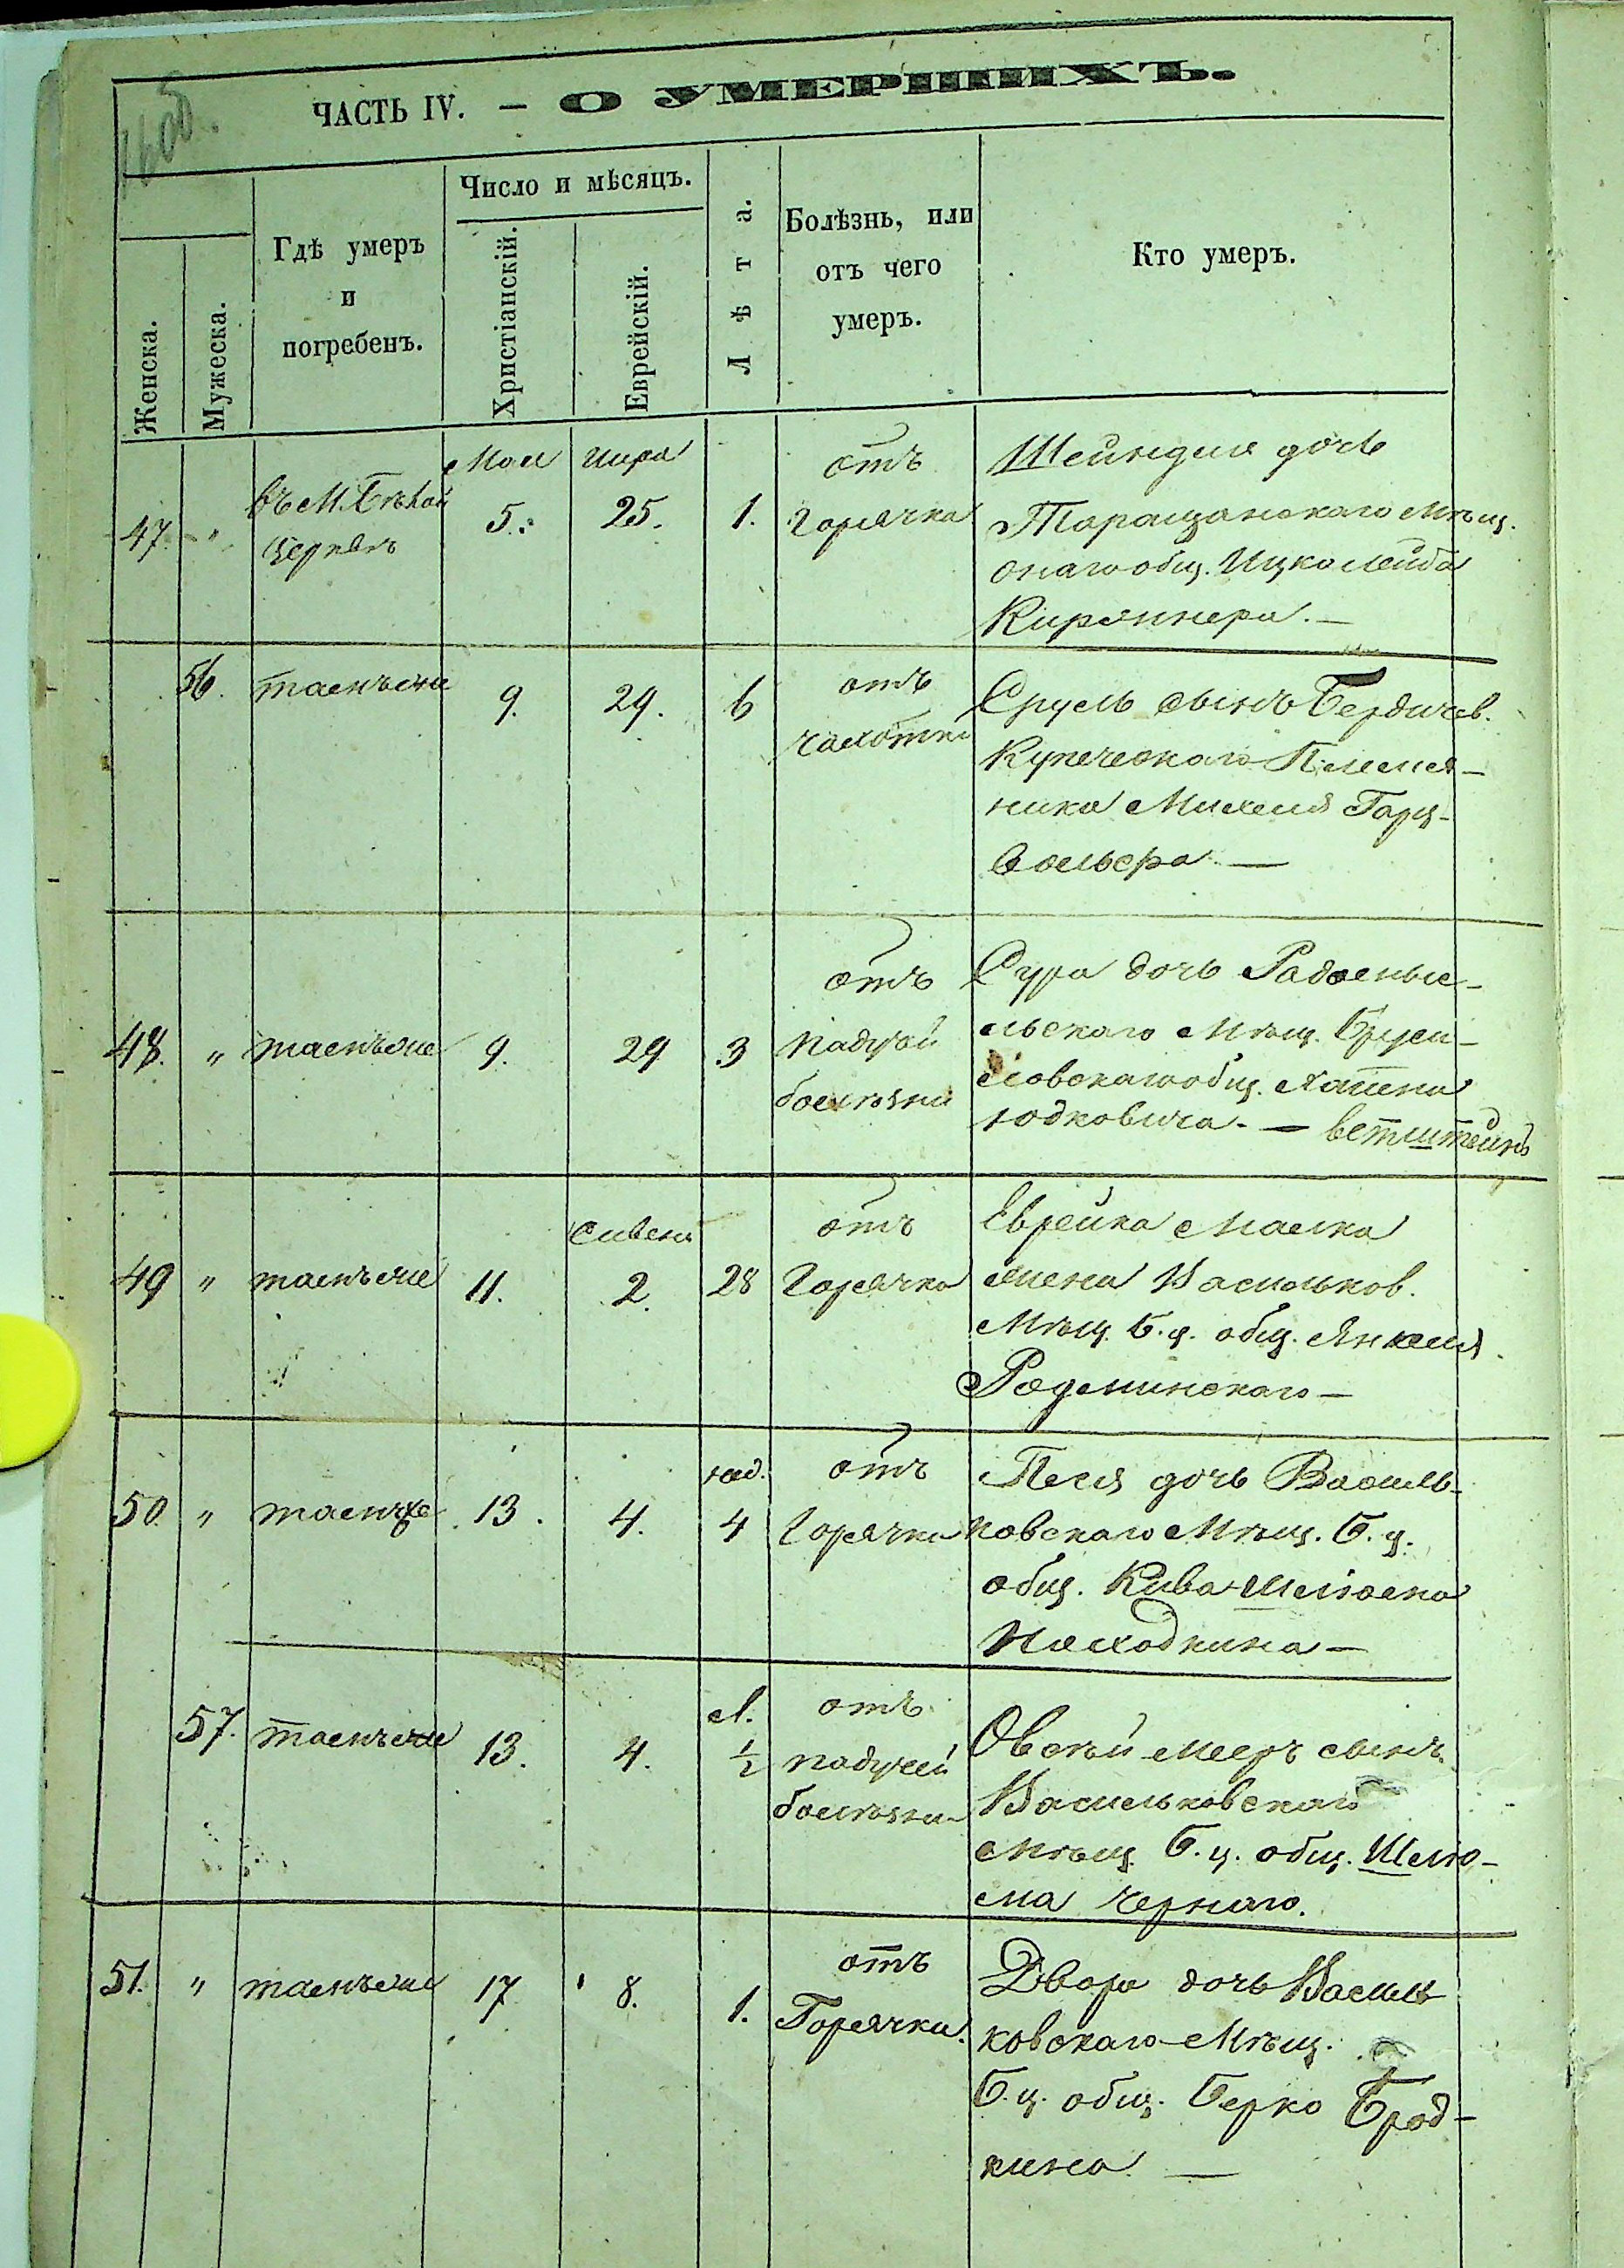 ЧАСТЬ IV. — О УМЕРШИХЪ.
Женска.
Мужеска.
Гдѣ умеръ
и
погребенъ.
Число и мѣсяцъ.
Христіанскій.
Еврейскій.
Лѣта.
Болѣзнь, или
отъ чего
умеръ.
Кто умеръ.
47. "
въ М. Бѣлой
Церквѣ
Мая
5.
Іира
25.
1.
отъ
Горячки
Шейндля дочь
Таращанскаго Мѣщ.
онаго общ. Ицко Лейба
56.
тамъ же
9.
29.
6
отъ
чахотки
Сруль сынъ Бердичев.
Купеческаго Племя-
ника Михеля Гарц-
48. "
тамъ же
9.
29
3
отъ
падучой
болѣзни
Сура дочь Радомыс-
льскаго Мѣщ. Бруси-
ловскаго общ.
Юдковича. — Ветштейнъ
49 "
тамъ же
11.
Сивень
2.
28
отъ
Горячки
Еврейка Малка
жена Васильков.
Мѣщ. Б. ц. общ. Янкеля
50. "
тамъ же
13.
4.
нед.
4
отъ
Горячки
Песя дочь Василь-
ковскаго Мѣщ. Б. ц.
общ. Кива
57.
тамъ же
13.
4.
л.
½
отъ
падучей
болѣзни
Овсѣй Меер сынъ
Васильковскаго
Мѣщ. Б. ц. общ. Шлю-
ма Чернаго.
51. "
тамъ же
17
8.
1.
отъ
Горячки.
Двора дочь Василь
ковскаго Мѣщ.
Б. ц. общ. Берко Брод-
кина —